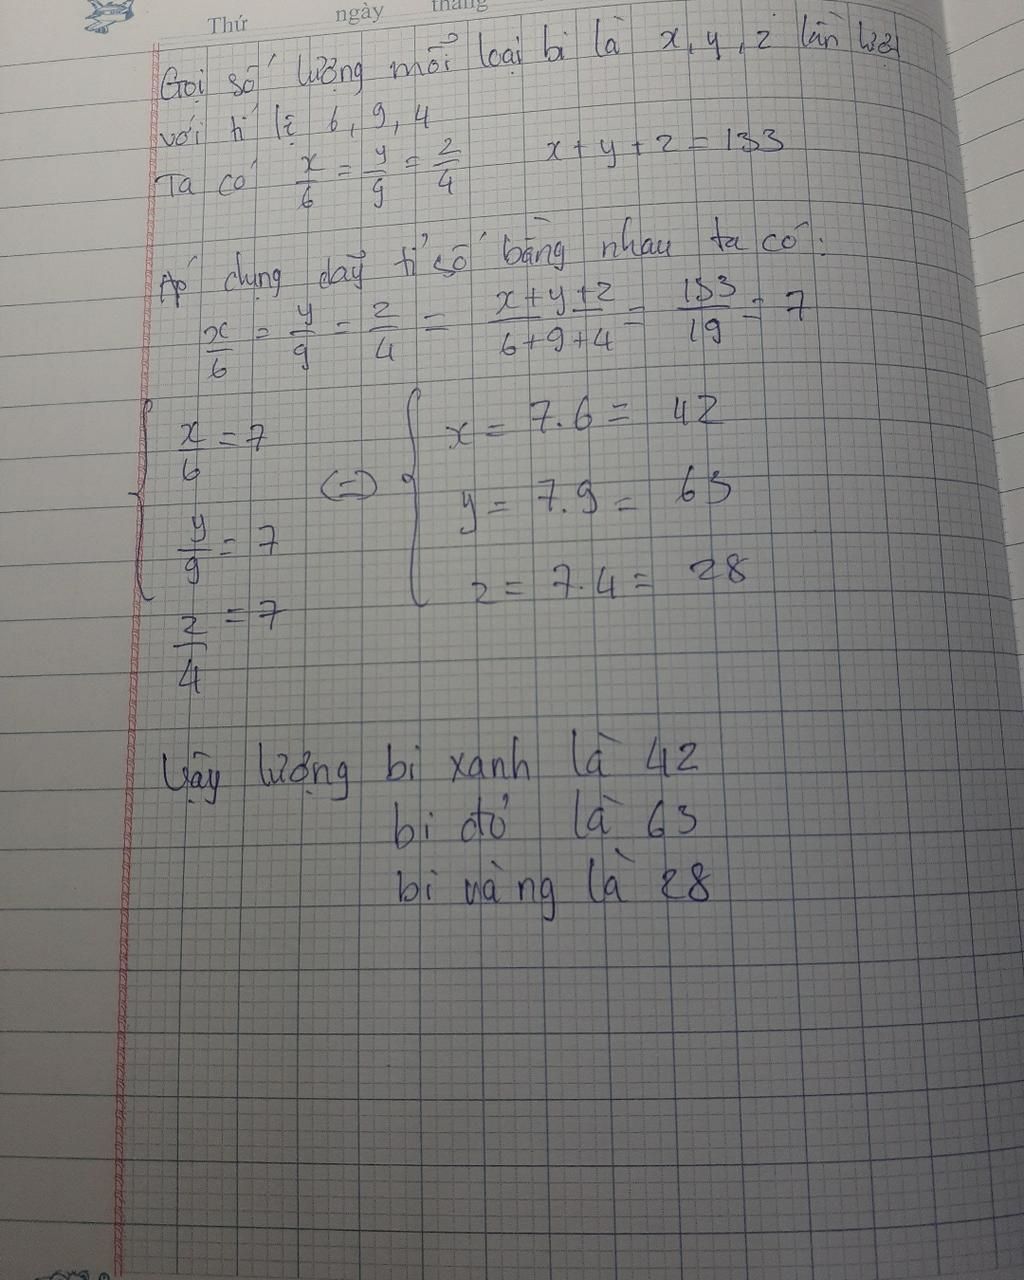 Thứ ngày tháng
Gọi số lượng mỗi loại bi là x, y, z lần lượt
với tỉ lệ 6, 9, 4
Ta có x/6 = y/9 = z/4 x + y + z = 133
Áp dụng dãy tỉ số bằng nhau ta có:
x/6 = y/9 = z/4 = x+y+z/6+9+4 = 133/19 = 7
x/6 = 7 x = 7.6 = 42
(=)
y/9 = 7 y = 7.9 = 63
z/4 = 7 z = 7.4 = 28
Vậy lượng bi xanh là 42
bi đỏ là 63
bi vàng là 28